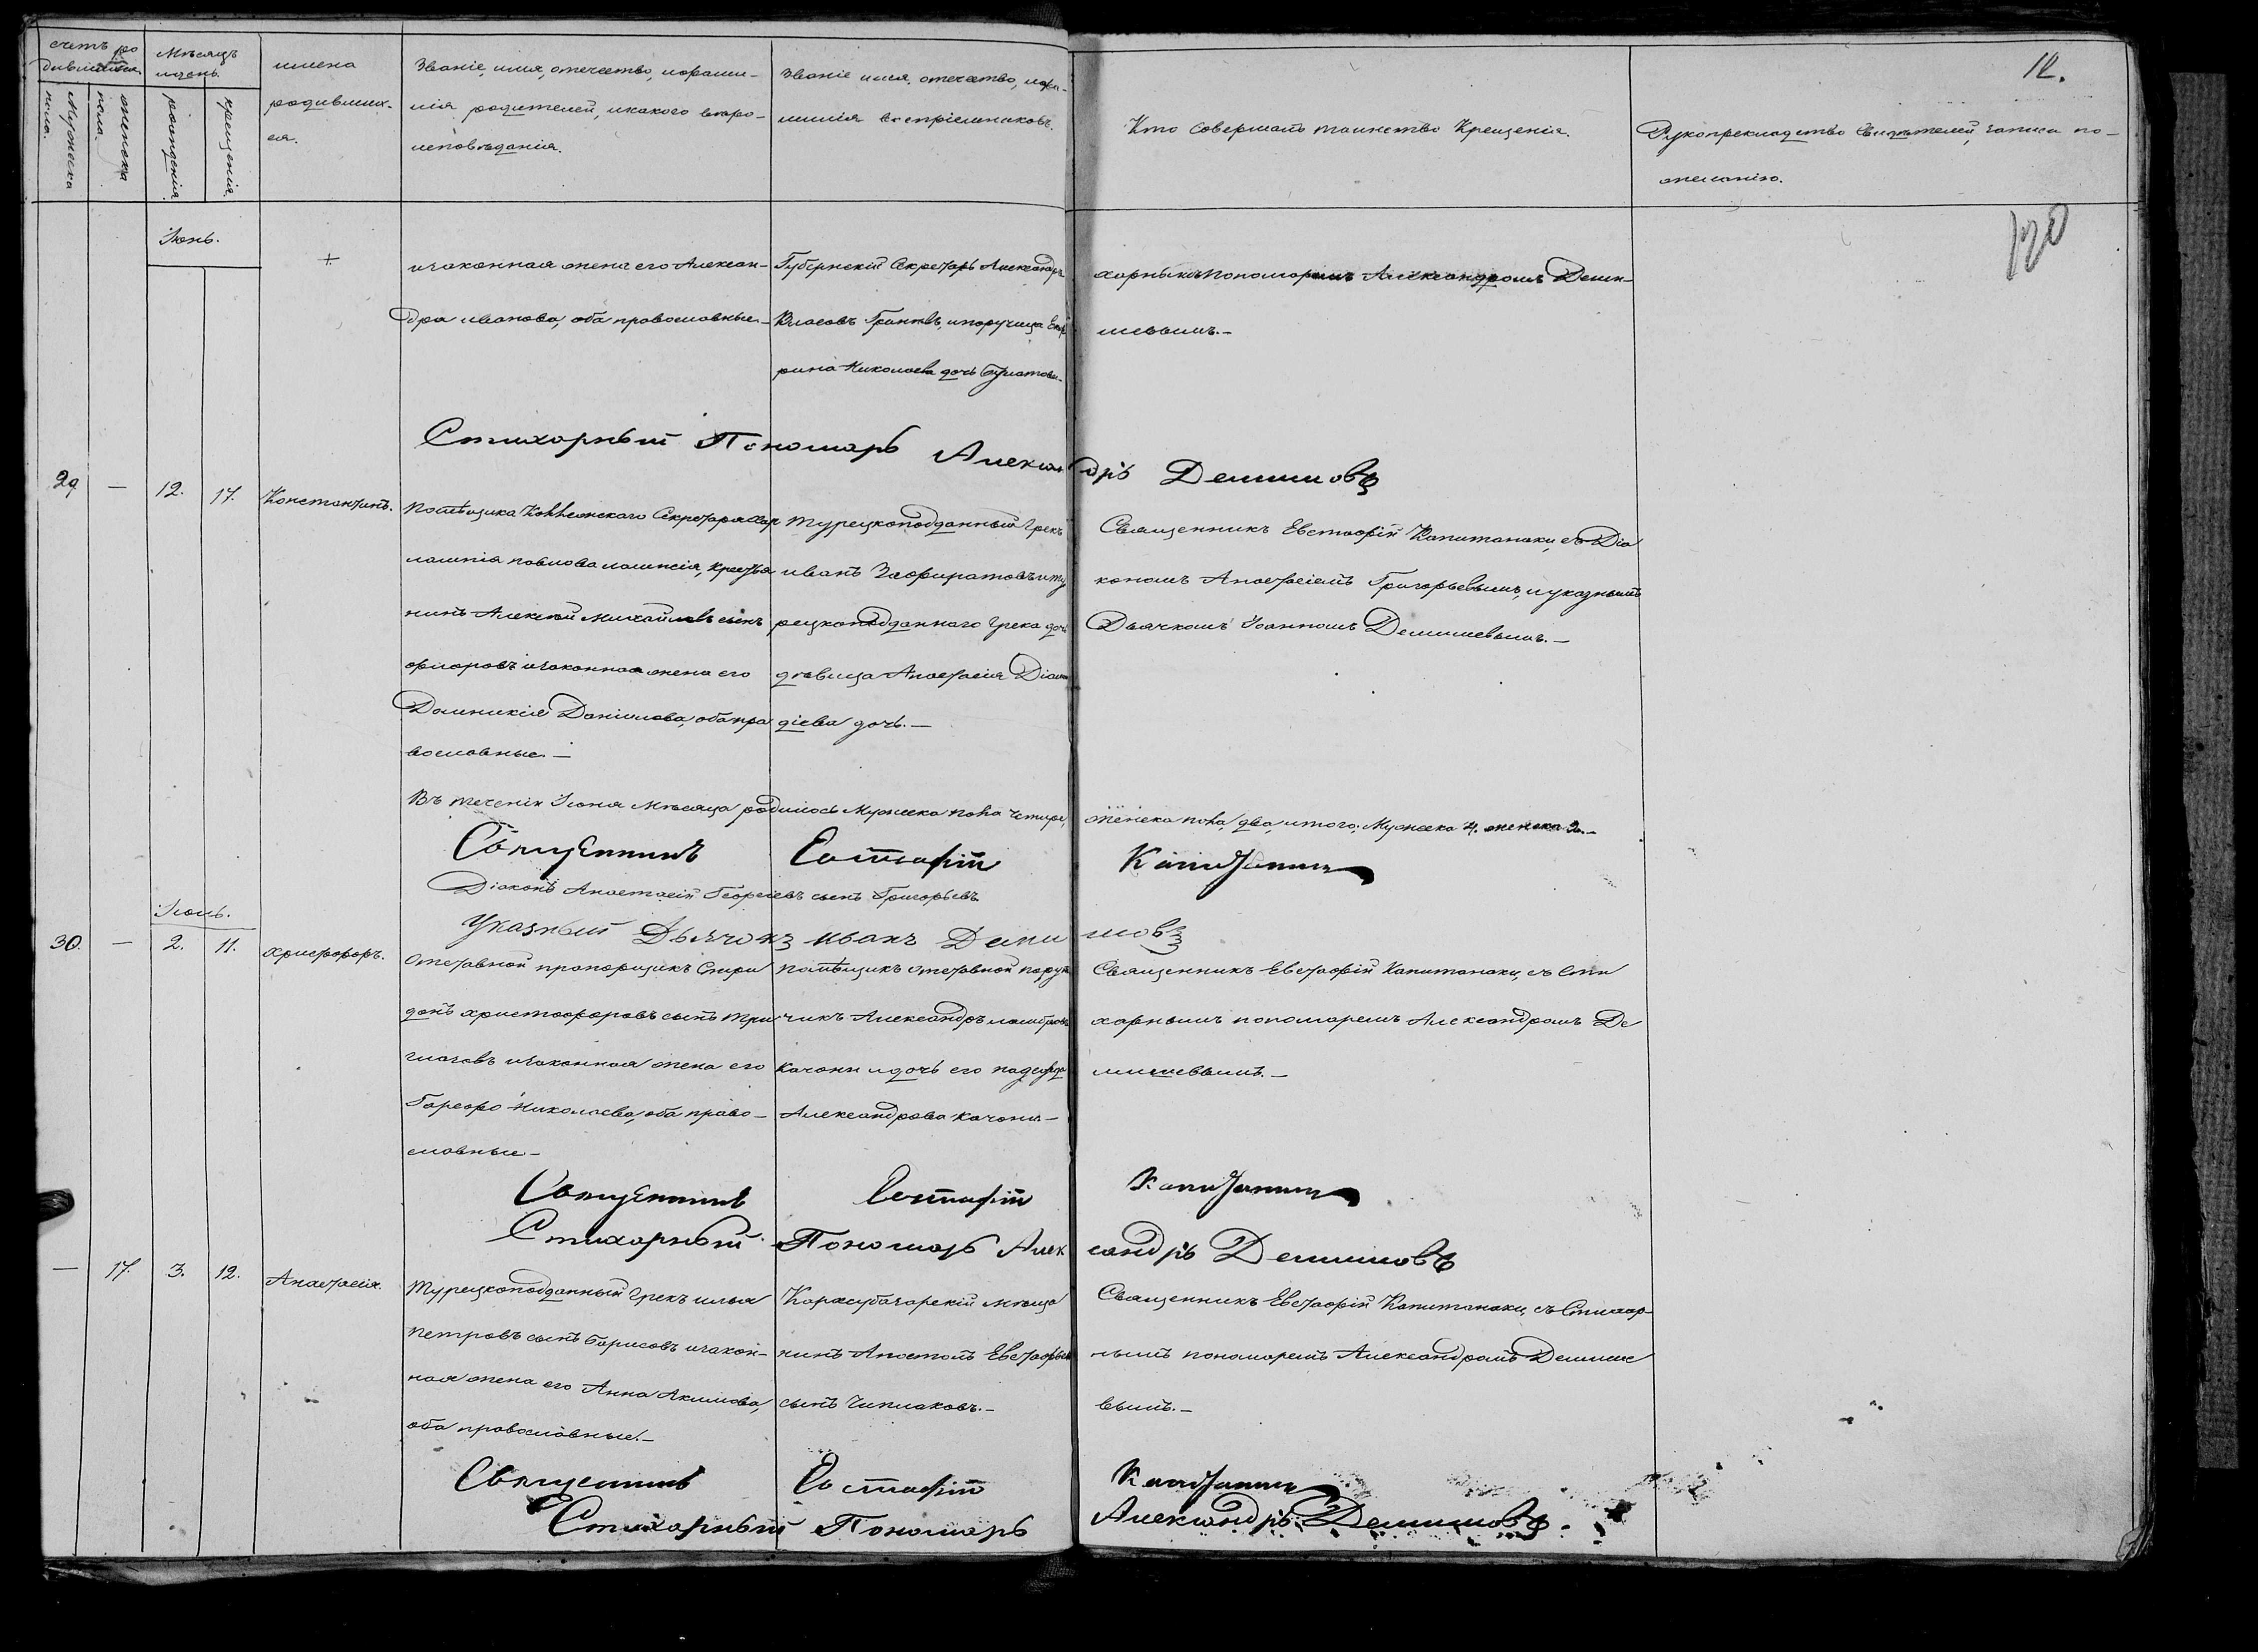 12.
счетъ ро
дившихся
Мѣсяцъ
и день.
имена
родивших-
ся.
Званіе, имя, отечество, и фами-
лія родителей, и какого вѣро-
исповѣданія.
Званіе имя, отечество, и фа-
милія воспріемниковъ.
Кто совершалъ таинство Крещенія.
Рукоприкладство свидѣтелей, записи по
желанію.
Мужеска
пола.
женска
пола.
рожденія.
крещенія.
120
Іюнь.
и законная жена его Алексан-
дра иванова, оба православные
Губернскій Секретарь Александръ
Власовъ и поручица Екате
рина Николаева дочь
харнымъ Пономаремъ Александромъ Деми-
шевымъ.
Стихорный Пономарь Александръ Демишовъ
29 — 12. 17. Константинъ.
Помѣщика Коллежскаго Секретаря Хар
лампія павлова крестья
нинъ Алексѣй Михайловъ сынъ
и законная жена его
Домникія Даніилова, оба пра
вославные.
Турецкоподданный Грекъ
иванъ и ту
рецкоподданнаго Грека дочь
дѣвица Анастасія
дочь.
Священникъ Евстафій Капитанаки, съ Діа
кономъ Анастасіемъ Григорьевымъ, и указнымъ
Дьячкомъ Іоанномъ Демишевымъ.
Въ теченіи Іюня Мѣсяца родилось Мужеска пола Четыре, женска пола, два, итого, Мужеска 4. женска 2.
Священникъ Евстафій Капитанаки
Діаконъ Анастасій Георгіевъ сынъ Григорьевъ
Указный Дьячокъ иванъ Демишовъ
Іюль.
30. — 2. 11. Христофоръ.
Отставной прапорщикъ Спири
донъ христофоровъ сынъ
и законная жена его
Николаева, оба право-
славные
Помѣщикъ отставной пору
чикъ Александръ
Качони и дочь его надежда
Александрова Качони
Священникъ Евстафій Капитанаки, съ Сти
харнымъ пономаремъ Александромъ Де
мишевымъ.
Священникъ Евстафій Капитанаки
Стихорный Пономарь Александръ Демишовъ
— 17. 3. 12. Анастасія.
Турецкоподданный Грекъ илья
петровъ сынъ Борисовъ и закон-
ная жена его Анна Акимова,
оба православные.
Карасубазарскій мѣща
нинъ Апостолъ Евстафьевъ
сынъ Чипчаковъ.
Священникъ Евстафій Капитанаки, съ Стихар-
нымъ пономаремъ Александромъ Демише
вымъ.
Священникъ Евстафій Капитанаки
Стихорный Пономарь Александръ Демишовъ.